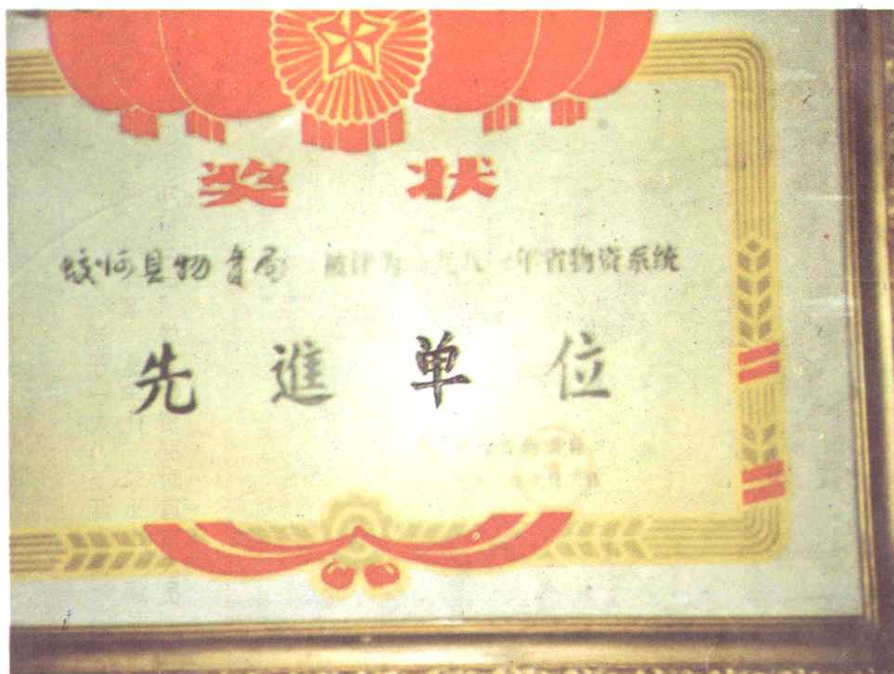 奖状
蛟河县物资局 被评为一九八一年省物资系统
先進单位